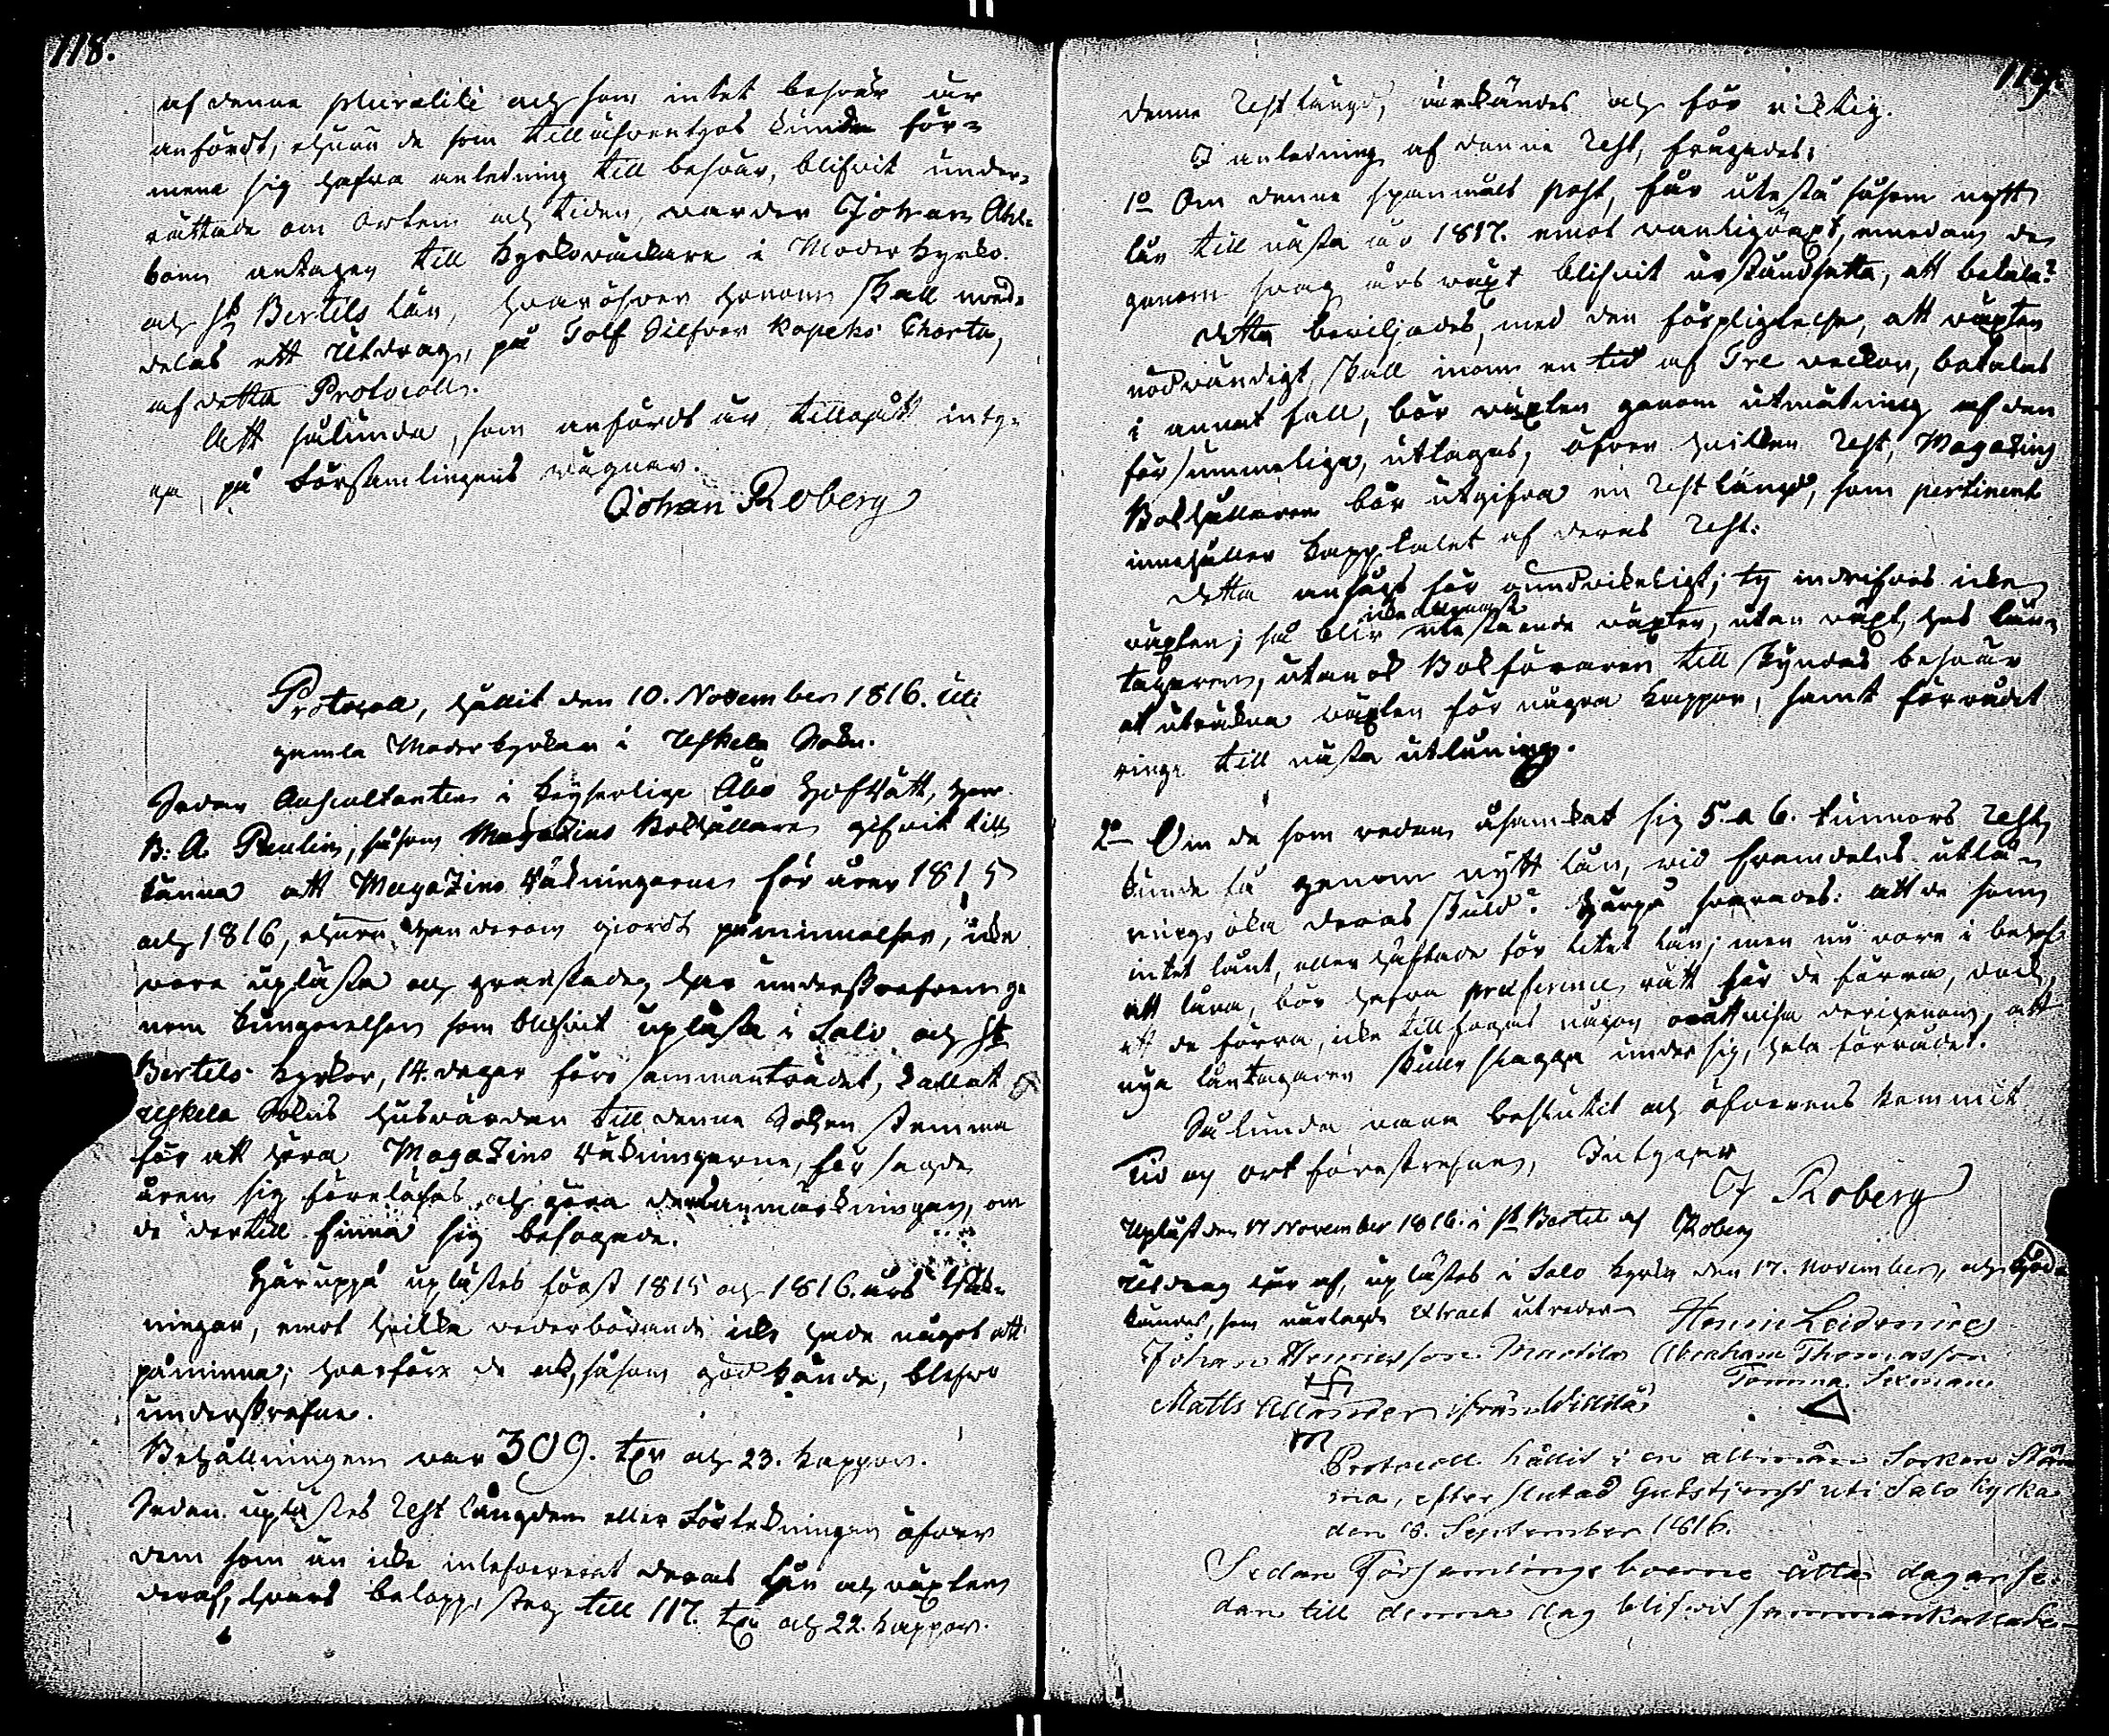 118.
af denna pluralité och som intet besvär är
anfördt, ehuru de som tilläfventyrs kunde för=
mena sig hafva anledning till besvär, blifvit under=
rättade om Orten och tiden, warder Johan Ahl=
bom antagen till Kyrkowäktare i Moderkyrko
och St Bertils län, hvaröfver honom skall med=
delas ett Utdrag, på Tolf Silfver Kopeks Charta,
af detta Protocoll.
Att sålunda, som anfördt är, tillgått inty=
ga på Församlingens wägnar.
Johan Roberg
Protocoll, hållit den 10. November 1816. uti
gamla Moderkyrkan i Uskela Sokn.
Sedan Auscultanten i Keyserliga Åbo Hofrätt, Herr
B: A. Paulin, såsom Magazins Bokhållare gifvit till
känna att Magazins Räkningarne för åren 1815
och 1816, ehuru han derom giordt påminnelser, icke
vore uplästa och granskade, har underskrefven ge
nom Kungörelsen som blifvit upläst i Salo och St
Bertils Kyrkor, 14. dagar före sammanträdet, kallat
Uskela Sokns Husvärdar till denna Sokenstemma
för att höra Magazins Räkningarne, för sagde
åren sig föreläsas och göra deras anmärkningar, om
de dertill finna sig befogade.
Häruppå uplästes först 1815 och 1816. års Räk=
ningar, emot hvilka vederbörande icke hade något att
påminna; hvarföre de ock, såsom godkände, blefvo
underskrefne.
Behållningen var 309. tr och 23. kappar.
Sedan uplästes Restlängden eller Förtekningen öfver
dem som än icke inlefvererat deras lån och växten
deraf, hvars belopp, steg till 117. tr och 22. kappar.
119.
denna Restlängd, erkändes och för riktig.
I anledning af denna Rest, frågades:
1o Om denna spannmåls post, får utestå såsom nytt
lån till nästa år 1817. emot vanlig växt, emedan de
genom svag års växt blifvit urståndsatta, att betala?
Detta beviljades, med den förpligtelse, att växten
nödvändigt skall inom en tid af Tre veckor, betalas
i annat fall, bör växten genom utmätning af den
försummelige, uttagas, öfver hvilken Rest, Magazins
Bokhållaren bör utgifva en Restlängd, som pertinent
innehåller kapptalet af deras Rest.
Detta ansågs för oundvikeligt; ty indrifves icke
växten; så blir icke allenast utestående växten, utan växt, hos lån=
tagaren, utan ock Bokföraren till skyndas besvär
at uträkna växten för några kappar, samt förrådet
ringa till nästa utlåning.
2o Om de som redan åsamkat sig 5. a 6. tunnors Rest,
kunde få genom nytt lån, vid framdeles utlå=
ning, öka deras skuld? Härpå svarades: att de som
intet lånt, eller häftade för litet lån; men nu vore i behof
att låna, bör hafva præference rätt för de förra, dock,
att de förra, icke tillfogas någon orättvisa derigenom, att
nya låntagaren skulle slagga under sig, hela förrådet.
Sålunda vara beslutit och öfverens kommit
Tid och ort föreskrefne, Intygar
J Roberg
Upläst den 17 November 1816. i St Bertils af Roberg
Utdrag här af, uplästes i Salo Kyrka den 17. November, och god
kändes, som närlagde Extract utreder
Henric Leidenius
Johan Henricsson Märtilä Abraham Thomasson
Tomma Sexman
Matts
Protocoll hållit i en allmän Socken Stäm
ma, efter slutad Gudstjenst uti Salo Kyrka
den 8. September 1816.
Sedan Församlings boerne åtta dagar se
dan till denna dag blifvit sammankallade